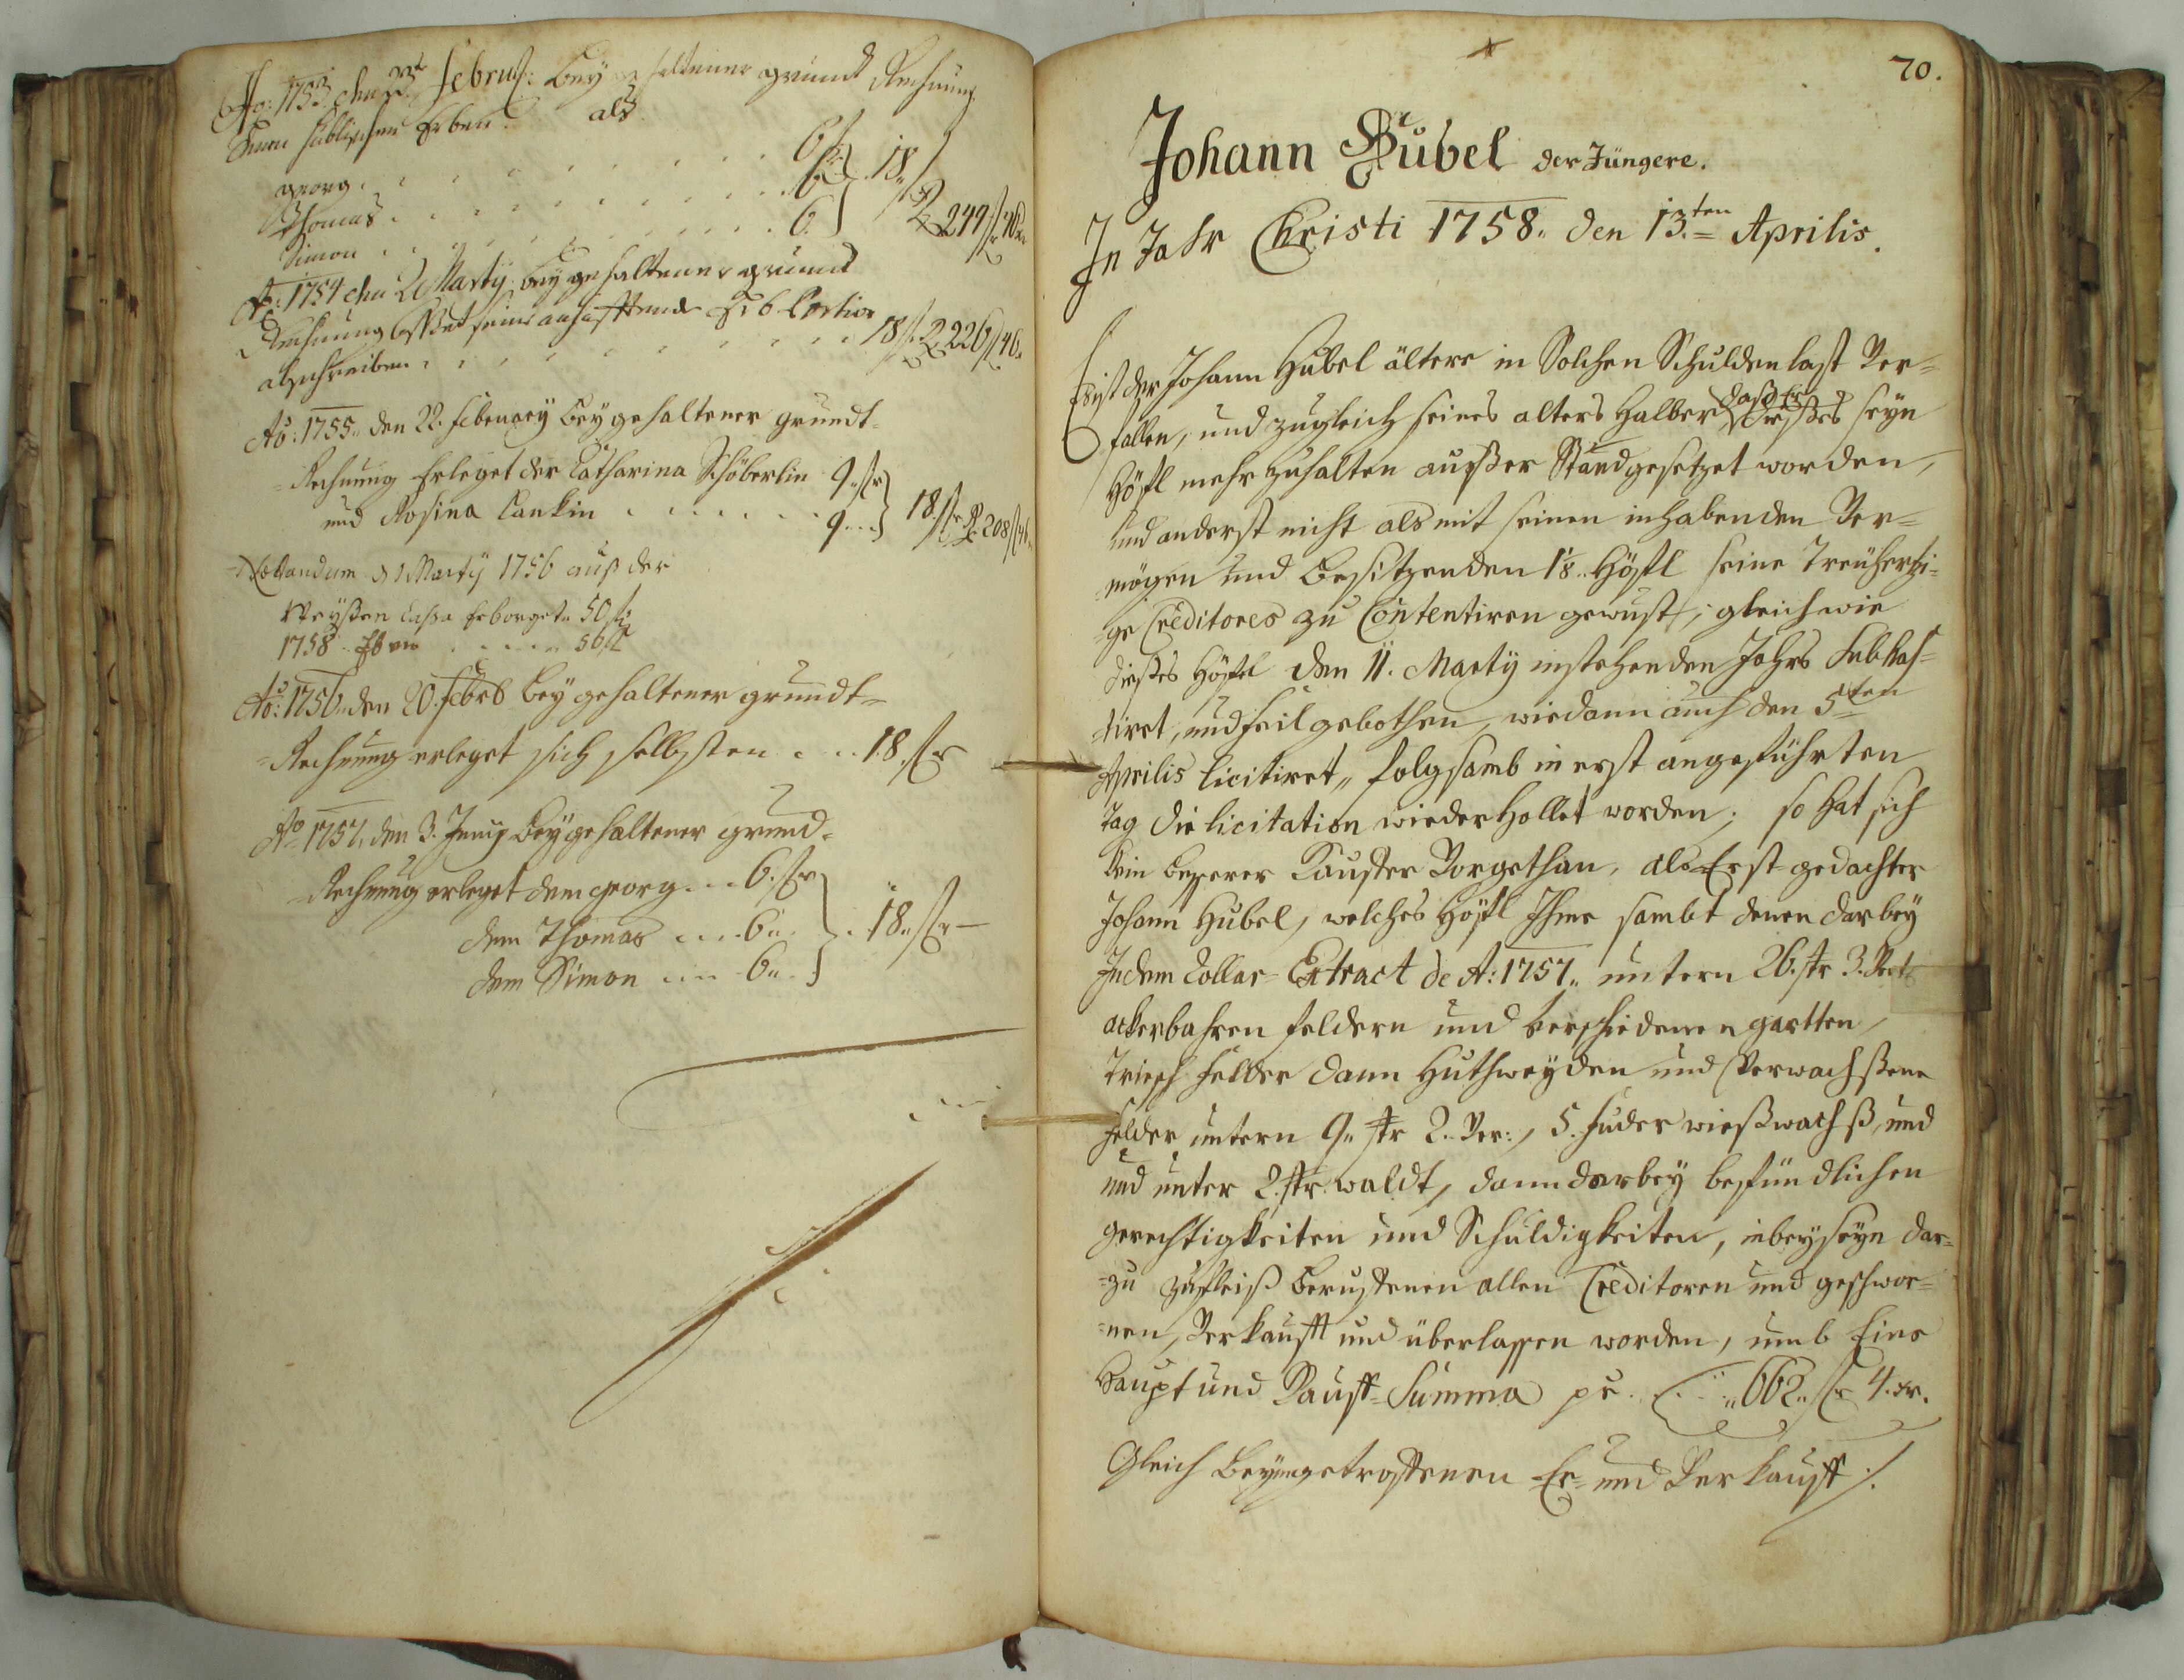 Ao: 1753 den 23t Februa: bey gehaltener grund Rechnung
Simon Hüblischen Erben. als
georg . . . . . . 6 f
Thomas . . . . . . 6 } 18 f
Simon . . . . . . 6. R 244 f 46 xr
Ao: 1754 den 2 Martÿ bey gehaltener grund
Rechnung lasset seine anhafftende Erb Portion
abschreiben . . . . . . 18 f. R 226 f 46.
Ao: 1755. den 22. februarÿ bey gehaltener grundt-
Rechnung Erleget der Catharina Schöberlin 9 fr
und Rosina Lankin . . . . . . 9 . . } 18 fr R 208 f 46
Notandum d 1 Martÿ 1756 auß der
Weyßen Cassa Erborget 50 f
1758 . . . . 50 f
Ao: 1756. den 20. febrb bey gehaltener grundt-
Rechnung erleget sich selbsten . . . 18. fr
Ao 1757. den 3. Junÿ bey gehaltener grund-
Rechnung erleget dem georg . . . 6. fr
dem Thomas . . . 6 . . } . 18 fr —
dem Simon . . . 6 . .
70.
Johann Hübel der Jüngere.
In Jahr Christi 1758. den 13.ten Aprilis.
Es ist der Johann Hübel ältere in Solchen Schuldenlast Ver=
fallen, und zugleich seines alters Halber daß Er dießes seyn
Höfl mehr zuhalten außer Stand gesetzet worden,
und anderst nicht als mit seinen inhabenden Ver=
mögen und Besitzenden 1/8. Höfl seine Treühertzi=
=ge Creditores zu Contentiren gewust, gleich wie
dießes Höfl den 11. Martÿ instehenden Jahrs Subhas=
=tiret, und feil gebothen, wie dann auch den 5ten
Aprilis licitiret, folgsamb in erst angeführten
Tag die licitation wiederhollet worden; so hat sich
Kein besserer Kauffer Vorgethan, als Erst gedachter
Johann Hübel, welches Höfl Ihme sambt denen darbey
In dem Collar=Extract de A: 1757. untern 26. str 3.
ackerbahren feldern und verschiedenen gartten,
Triesch felder dann Huthweyden und Verwachßene
felder untern 9. str 2. Ver:, 5. fuder wießwachß, und
und unter 2. str. waldt, dann darbey befündlichen
gerechtigkeiten und Schuldigkeiten, in beyseyn dar=
=zu zufleiß beruffenen allen Creditoren und geschwor=
=nen, Verkaufft und überlassen worden, umb Eine
Haupt und Kauff=Summa pr. . . 662. fr 4. xr.
Gleich Beyngetroffenen Er= und Verkauff ./.